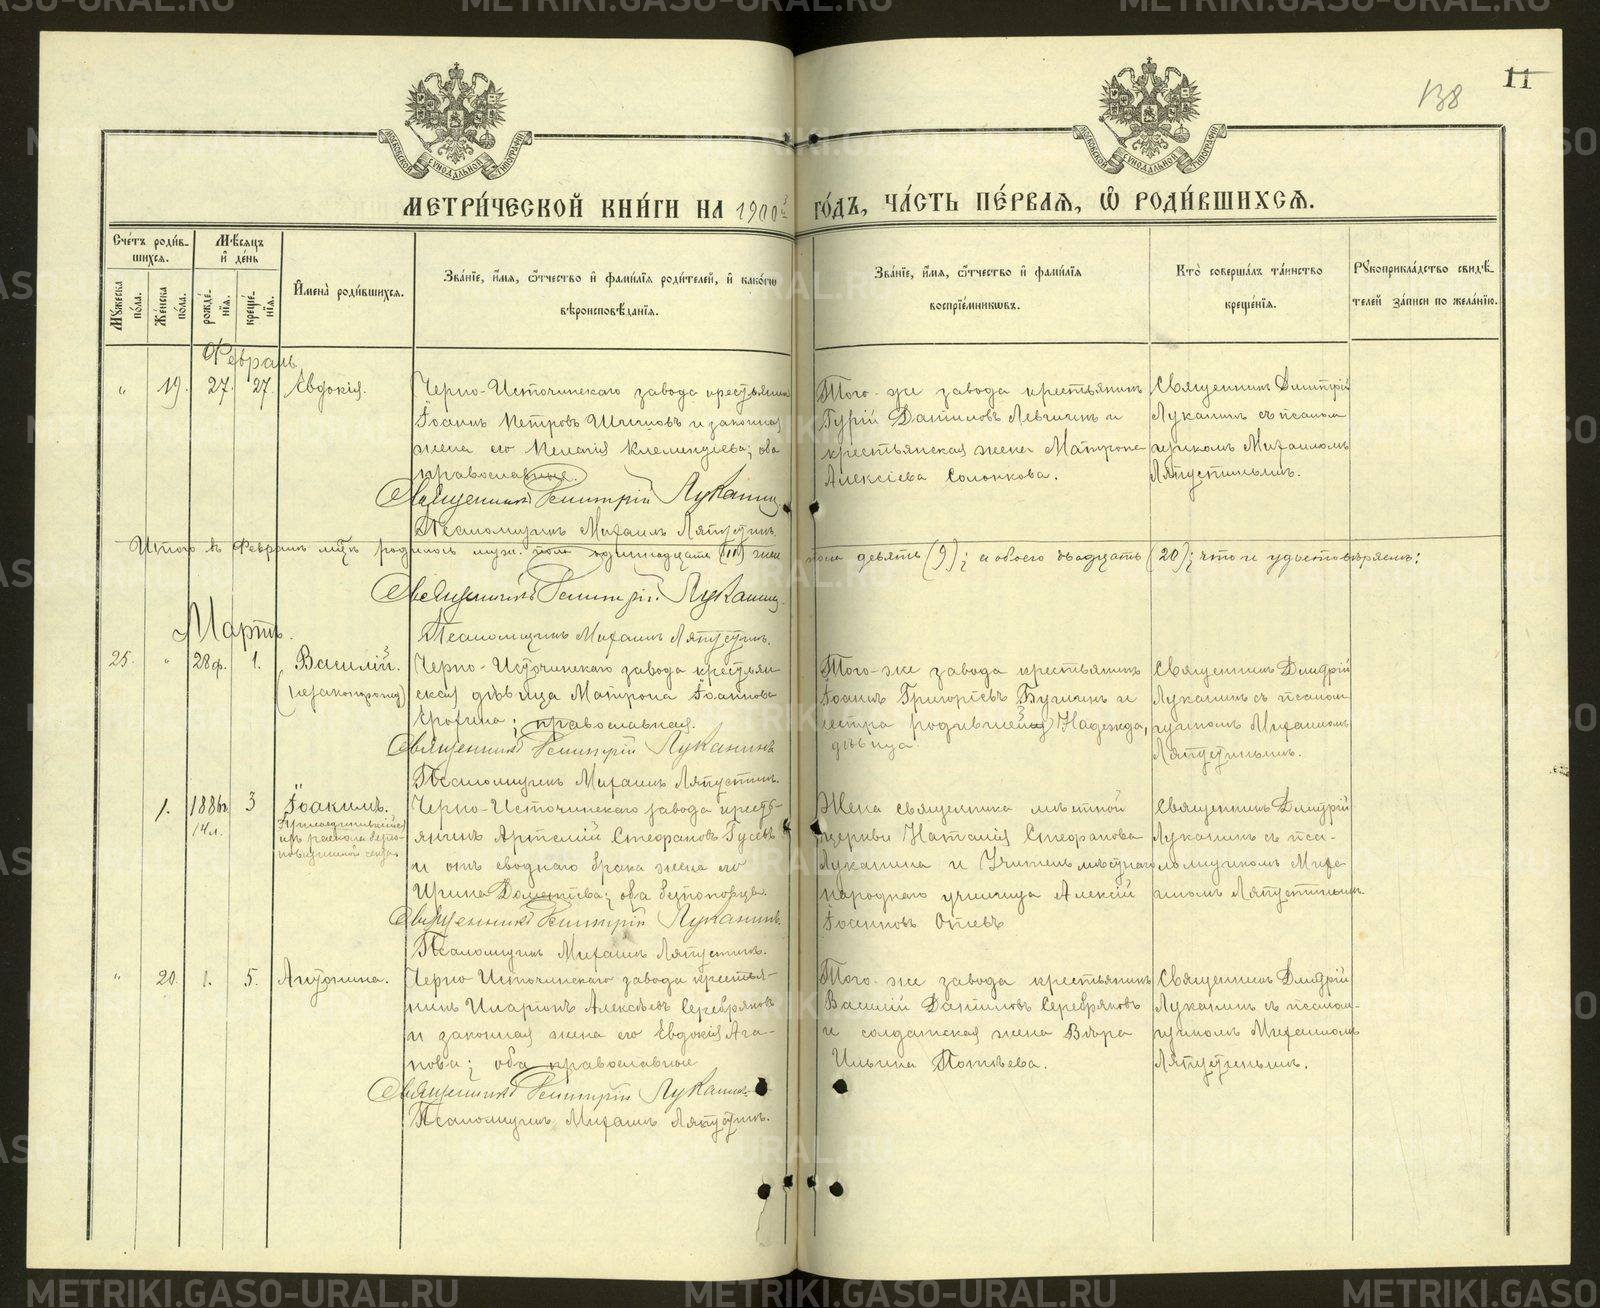 METRIKI.GASO-URAL.RU
138
11
МОСКОВСКОЙ СѴНОДАЛЬНОЙ ТИПОГРАФІИ
МОСКОВСКОЙ СѴНОДАЛЬНОЙ ТИПОГРАФІИ
МЕТРИ́ЧЕСКОЙ КНИ́ГИ НА 1900 й ГО́ДЪ, ЧА́СТЬ ПЕ́РВАѦ, Ѡ҆ РОДИ́ВШИХСѦ.
Сче́тъ роди́вшихсѧ.
Мꙋ́жеска по́ла.
Же́нска по́ла.
Мѣ́сѧцъ и҆ де́нь
рожде́нїѧ.
креще́нїѧ.
И҆мена̀ роди́вшихсѧ.
Зва́нїе, и҆́мѧ, ѻ҆́тчество и҆ фами́лїѧ роди́телей, и҆ како́гѡ
вѣроисповѣ́данїѧ.
Зва́нїе, и҆́мѧ, ѻ҆́тчество и҆ фами́лїѧ
воспрїе́мникѡвъ.
Кто̀ соверша́лъ та́инство
креще́нїѧ.
Рꙋкоприкла́дство свидѣ́телей за́писи по жела́нїю.
Февраль
„ 19. 27. 27. Евдокія.
Черно-Источинскаго завода крестьянинъ
Іоаннъ Петровъ и законная
жена его Пелагія Климентіева; оба
православные.
Священникъ Димитрій Луканинъ
Псаломщикъ Михаилъ Ляпустинъ.
Того-же завода крестьянинъ
Гурій Даниловъ Левчинъ и
крестьянская жена Матрона
Алексіева Солонкова.
Священникъ Димитрій
Луканинъ съ псалом-
щикомъ Михаиломъ
Ляпустинымъ.
Итого въ Февралѣ мцѣ родилось муж. пола одиннадцать (11) жен
пола девять (9); а обоего двадцать (20); что и удостовѣряемъ:
Священникъ Димитрій Луканинъ
Псаломщикъ Михаилъ Ляпустинъ.
Мартъ.
25. „ 28 ф. 1. Василій.
(незаконорожд)
Черно-Источинскаго завода крестьян-
ская дѣвица Матрона Іоаннова
Ерохина; православная.
Священникъ Димитрій Луканинъ
Псаломщикъ Михаилъ Ляпустинъ.
Того-же завода крестьянинъ
Іоаннъ Григоріевъ и
сестра родившей Надежда,
дѣвица.
Священникъ Димитрій
Луканинъ съ псалом-
щикомъ Михаиломъ
Ляпустинымъ.
1. 1886 г. 3 Іоакимъ.
14 л. Присоединившійся
изъ раскола безпо-
повщинской секты
Черно-Источинскаго завода кресть-
янинъ Артемій Стефановъ Гусевъ
и отъ своднаго брака жена его
Ирина Дометіева; оба безпоповцы.
Священникъ Димитрій Луканинъ.
Псаломщикъ Михаилъ Ляпустинъ.
Жена священника мѣстной
церкви Наталія Стефанова
Луканина и Учитель мѣстнаго
народнаго училища Алексій
Іоанновъ
Священникъ Димитрій
Луканинъ съ пса-
ломщикомъ Миха-
иломъ Ляпустинымъ.
„ 20. 1. 5. Антонина.
Черно Источинскаго завода крестья-
нинъ Иларіонъ Алексѣевъ Серебряковъ
и законная жена его Евдокія Ага-
пова; оба православные
Священникъ Димитрій Луканинъ
Псаломщикъ Михаилъ Ляпустинъ.
Того-же завода крестьянинъ
Василій Даниловъ Серебряковъ
и солдатская жена Вѣра
Ильина Потѣева.
Священникъ Димитрій
Луканинъ съ псалом-
щикомъ Михаиломъ
Ляпустинымъ.